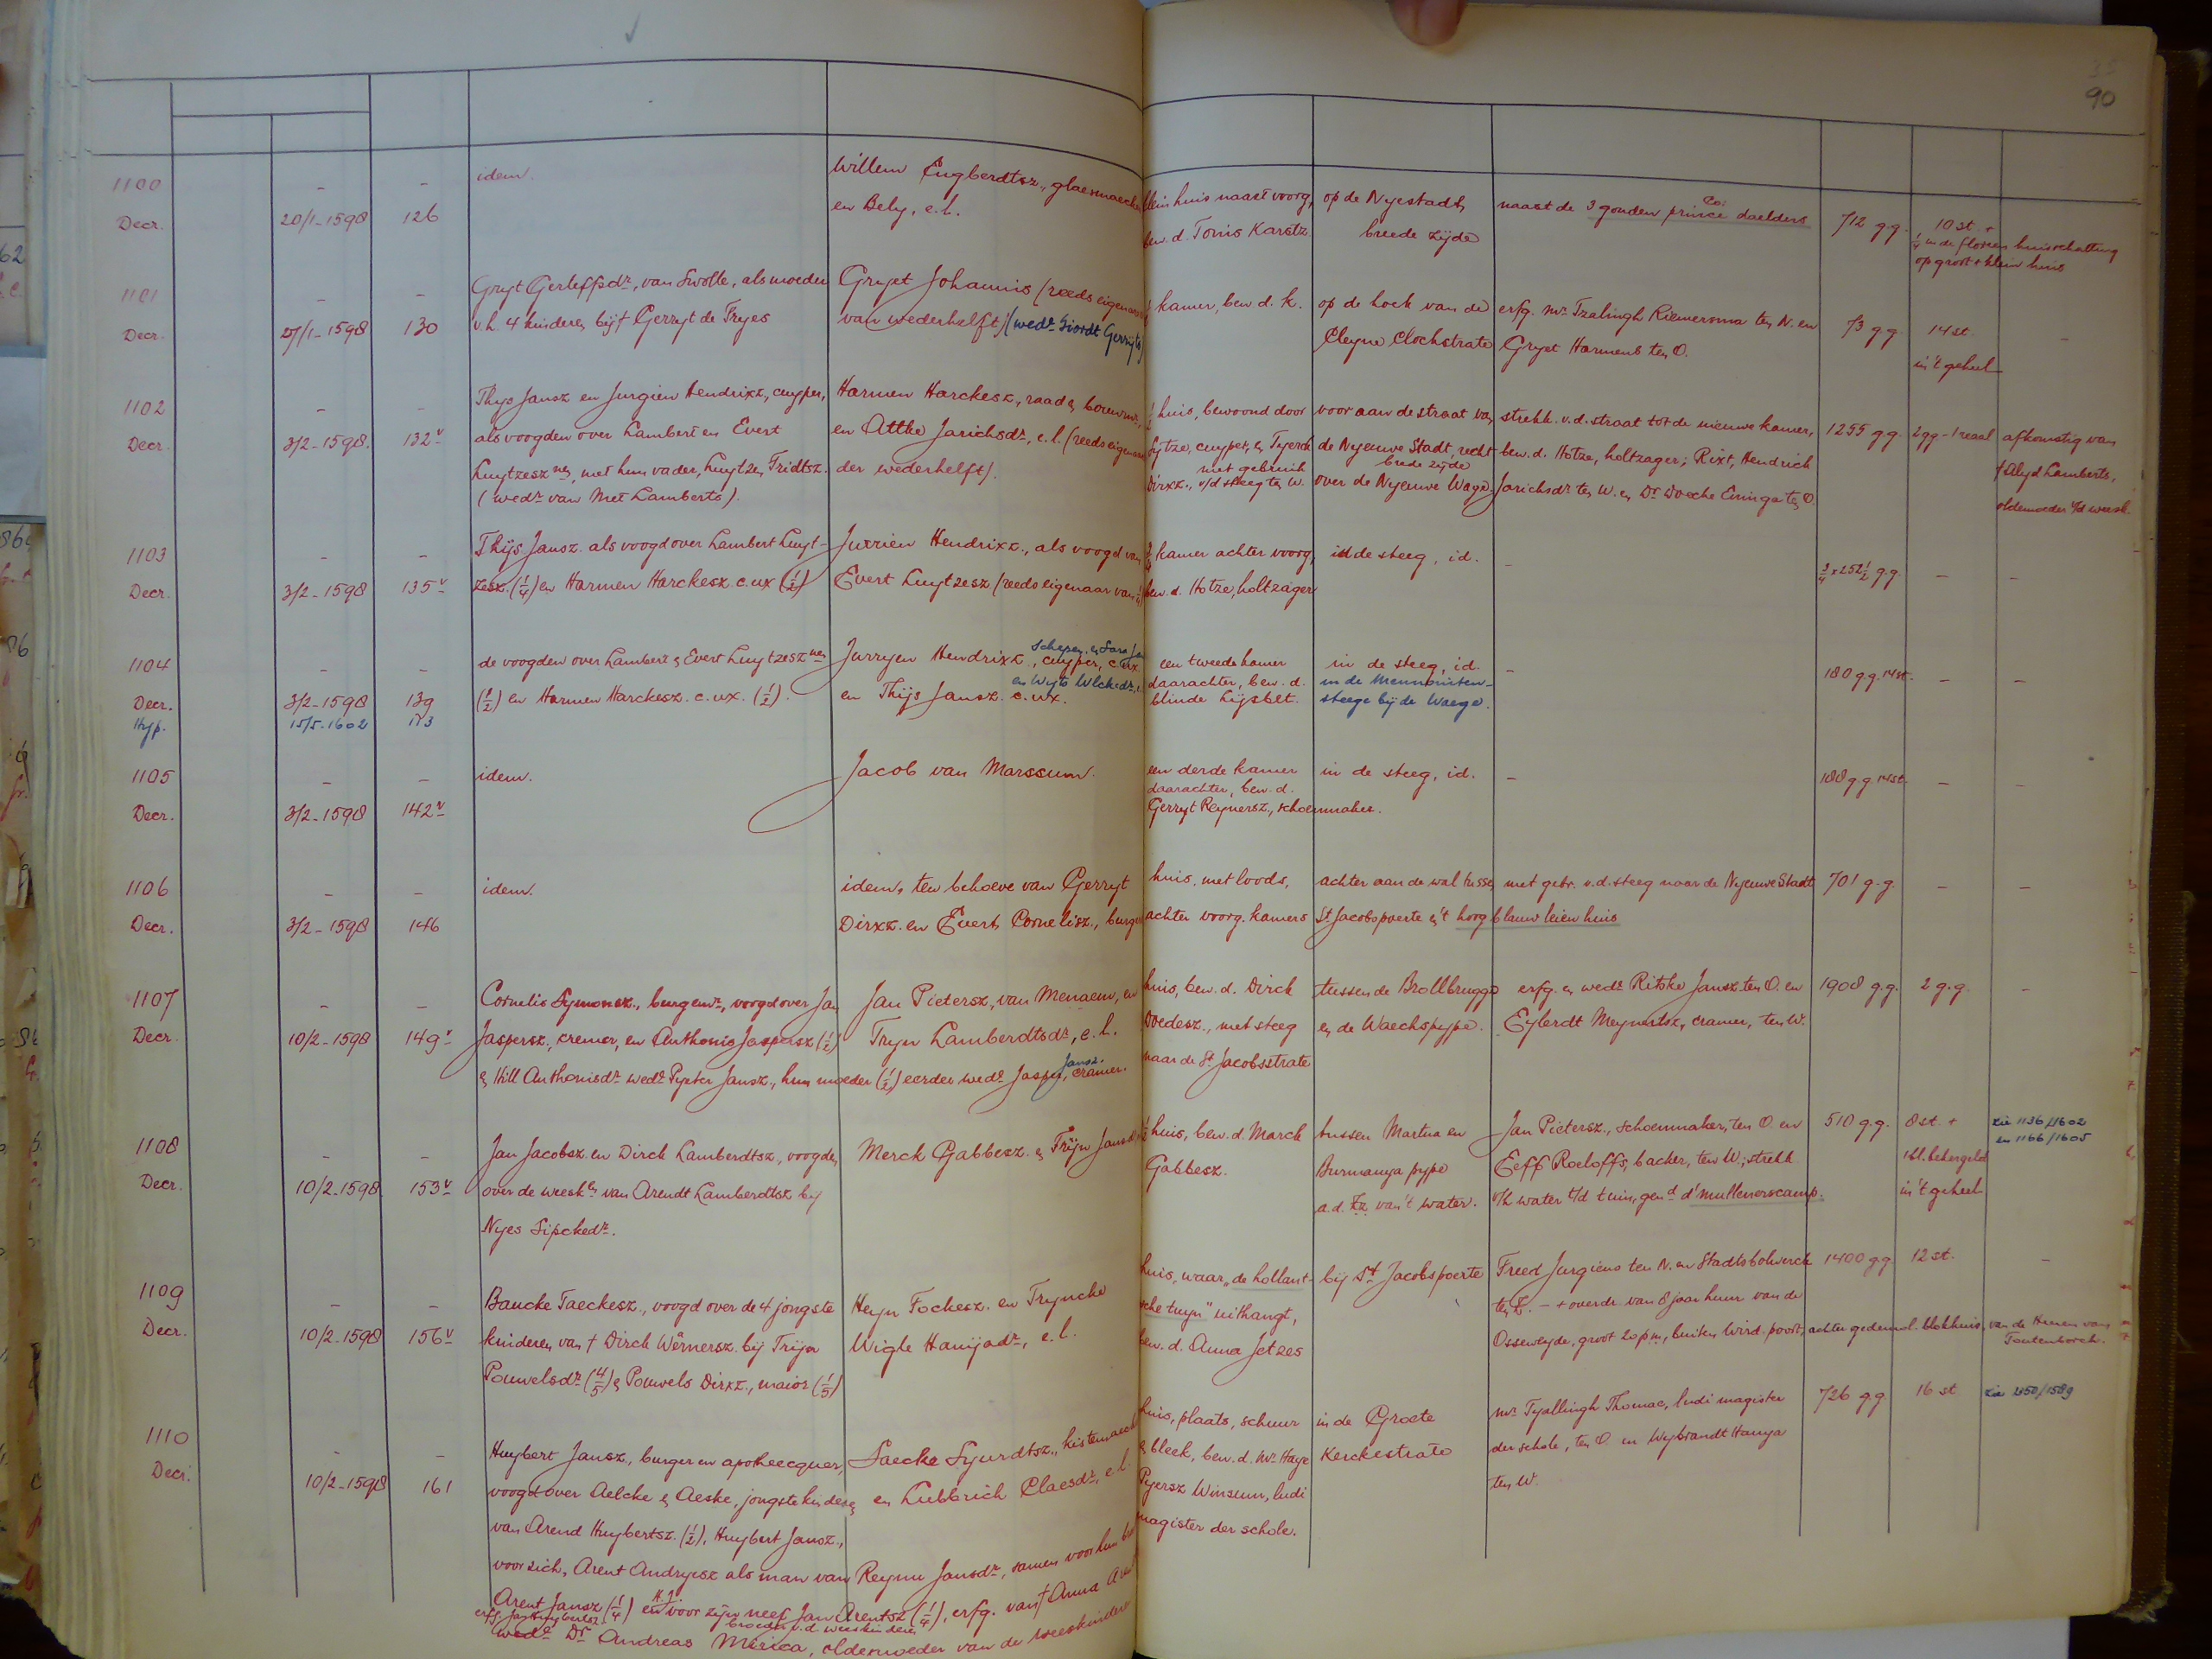 90
1100 – – idem. Willem Engberdtsz., glaesmaecker klein huis naast voorg, op de Nyestadt, naast de 3 gouden prince daelders 712 g.g. 10 st. +
Decr. 20/1-1598 126 en Bely, e.l. bew. d. Tonis Karstz. breede zijde ¼ in de floreen huisschatting
op groot + klein huis
1101 – – Gryt Gerleffsdr, van Swolle, als moeder Gryet Johannis (reeds eigenares ½ kamer, bew. d. k. op de hoek van de erfg. mr. Tzalingh Riemersma ten N. en 73 g.g. 14 st. –
Decr. 27/1-1598 130 v.h. 4 kinderen bij † Gerryt de Fryes van wederhelft) (wedr. Siordt Gerryts) Cleyne Clockstrate Gryet Harmens ten O. in 't geheel
1102 – – Thys Jansz en Jurgien Hendrixz, cuyper, Harmen Harckesz, raad & bouwmr., ½ huis, bewoond door voor aan de straat van strekk. v.d. straat tot de nieuwe kamer, 1255 g.g. 2 gg – 1 reael afkomstig van
Decr. 3/2-1598. 132v als voogden over Lambert en Evert en Attke Jarichsdr, e.l. (reeds eigenaars Sytze, cuyper, & Tyerck de Nyeuwe Stadt, recht bew. d. Hotze, holtzager; Rixt, Hendrick † Alyd Lamberts,
Luytzesz nen, met hun vader, Luytzen Fridtsz. der wederhelft). met gebruik brede zijde
Dirxz., v/d steeg ten W. over de Nyeuwe Wage. Jarichsdr ten W. en Dr Doecke Eminga ten O. oldemoeder v/d weesk.
(wedr van Met Lamberts).
1103 – – Thijs Jansz. als voogd over Lambert Luyt- Jurrien Hendrixz., als voogd van ¾ kamer achter voorg, in de steeg, id. – ¾ x 252½ g.g. – –
Decr. 3/2-1598 135v zesz. (¼) en Harmen Harckesz. c. ux (½) Evert Luytzesz (reeds eigenaar van ¼) bew. d. Hotze, holtzager
1104 – – de voogden over Lambert & Evert Luytzesz nen Jurryen Hendrixz., cuyper, c. ux. een tweede kamer in de steeg, id. – 180 g.g. 14 st. – –
schepen, & Sara
Decr. 3/2-1598 139 (½) en Harmen Harckesz. c. ux. (½). en Thijs Jansz. c. ux. daarachter, bew. d. in de Mennonieten-
en Wyts Wlckedr,
Hyp. 15/5-1602 113 blinde Lijsbet. steege bij de Waege.
1105 – – idem. Jacob van Marssum. een derde kamer in de steeg, id. – 188 g.g. 14 st. – –
Decr. 3/2-1598 142v daarachter, bew. d.
Gerryt Reynersz., schoenmaker.
1106 – – idem. idem, ten behoeve van Gerryt huis, met loods, achter aan de wal tussen met gebr. v.d. steeg naar de Nyeuwe Stadt 701 g.g. – –
Decr. 3/2-1598 146 Dirxz. en Evert Cornelisz., burger achter voorg. kamers St Jacobspoerte & 't hoog blauw leien huis
1107 – – Cornelis Symonsz., burgemr., voogd over Jan Jan Pietersz, van Menaem, en huis, bew. d. Dirck tussen de Brollbrugge erfg. & wedr Ritske Jansz. ten O. en 1908 g.g. 2 g.g. –
Decr. 10/2-1598 149v Jaspersz., cremer, en Anthonis Jaspersz (½) Tryn Lamberdtsdr, e.l. Doedesz., met steeg & de Waechspype. Eylerdt Meynertsz., cramer, ten W.
& Hill Anthonisdr wedr Pyeter Jansz., hun moeder (½) eerder wedr Jasper Jansz., cramer. naar de St Jacobsstrate
1108 – – Jan Jacobsz. en Dirck Lamberdtsz, voogden Merck Gabbesz. & Trijn Jansdr ½ huis, bew. d. Marck tussen Martna en Jan Pietersz., schoenmaker, ten O. en 510 g.g. 8 st. + zie 1136/1602
en 1166/1605
Decr. 10/2-1598 153v over de weesken van Arendt Lamberdtsz bij Gabbesz. Burmanya pype Eeff Roeloffs, backer, ten W.; strekk.
Nyes Sipckedr. a.d. Zz. van 't water. v/h water t/d tuin, gend d'mullenerscamp. in 't geheel
1109 – – Baucke Taeckesz., voogd over de 4 jongste Heyn Fockesz. en Tryncke huis, waar „de hollant- bij St Jacobspoerte Freed Jurgiens ten N. en Stadtsbolwerck 1400 gg 12 st. –
Decr. 10/2-1598 156v kinderen van † Dirck Wernersz. bij Trijn Wigle Hanijadr, e.l. sche tuyn" uithangt, ten Z. – + overdr. van 8 jaar huur van de
Pouwelsdr (4/5) & Pouwels Dirxz., maior (1/5) bew. d. Anna Jetzes Osseweyde, groot 20 pm, buiten Wird. poort, achter gedemol. blokhuis, van de Heeren van
Toutenborch.
1110 – – Huybert Jansz, burger en apotheecquer, Saecke Syurdtsz., kistemaecker huis, plaats, schuur in de Groete mr. Tyallingh Thomae, ludi magister 726 gg 16 st. zie 450/1589
Decr. 10/2-1598 161 voogd over Aelcke & Aeske, jongste kinderen en Lubbrich Claesdr, e.l. & bleek, bew. d. Mr Haye Kerckestrate der schole, ten O. en Wybrandt Hanya
van Arend Huybertsz. (½), Huybert Jansz., Pyersz Winsum, ludi ten W.
voor zich, Arent Andryesz als man van Reynu Jansdr, samen voor hun magister der schole.
Arent Jansz (¼) en H.J. voor zijn neef Jan Arentsz (¼), erfg. van † Anna
erfg. Jan Huybertsz. broeder v.d. weeskinderen
wede Dr Andreas Merica, oldemoeder van de weeskinderen